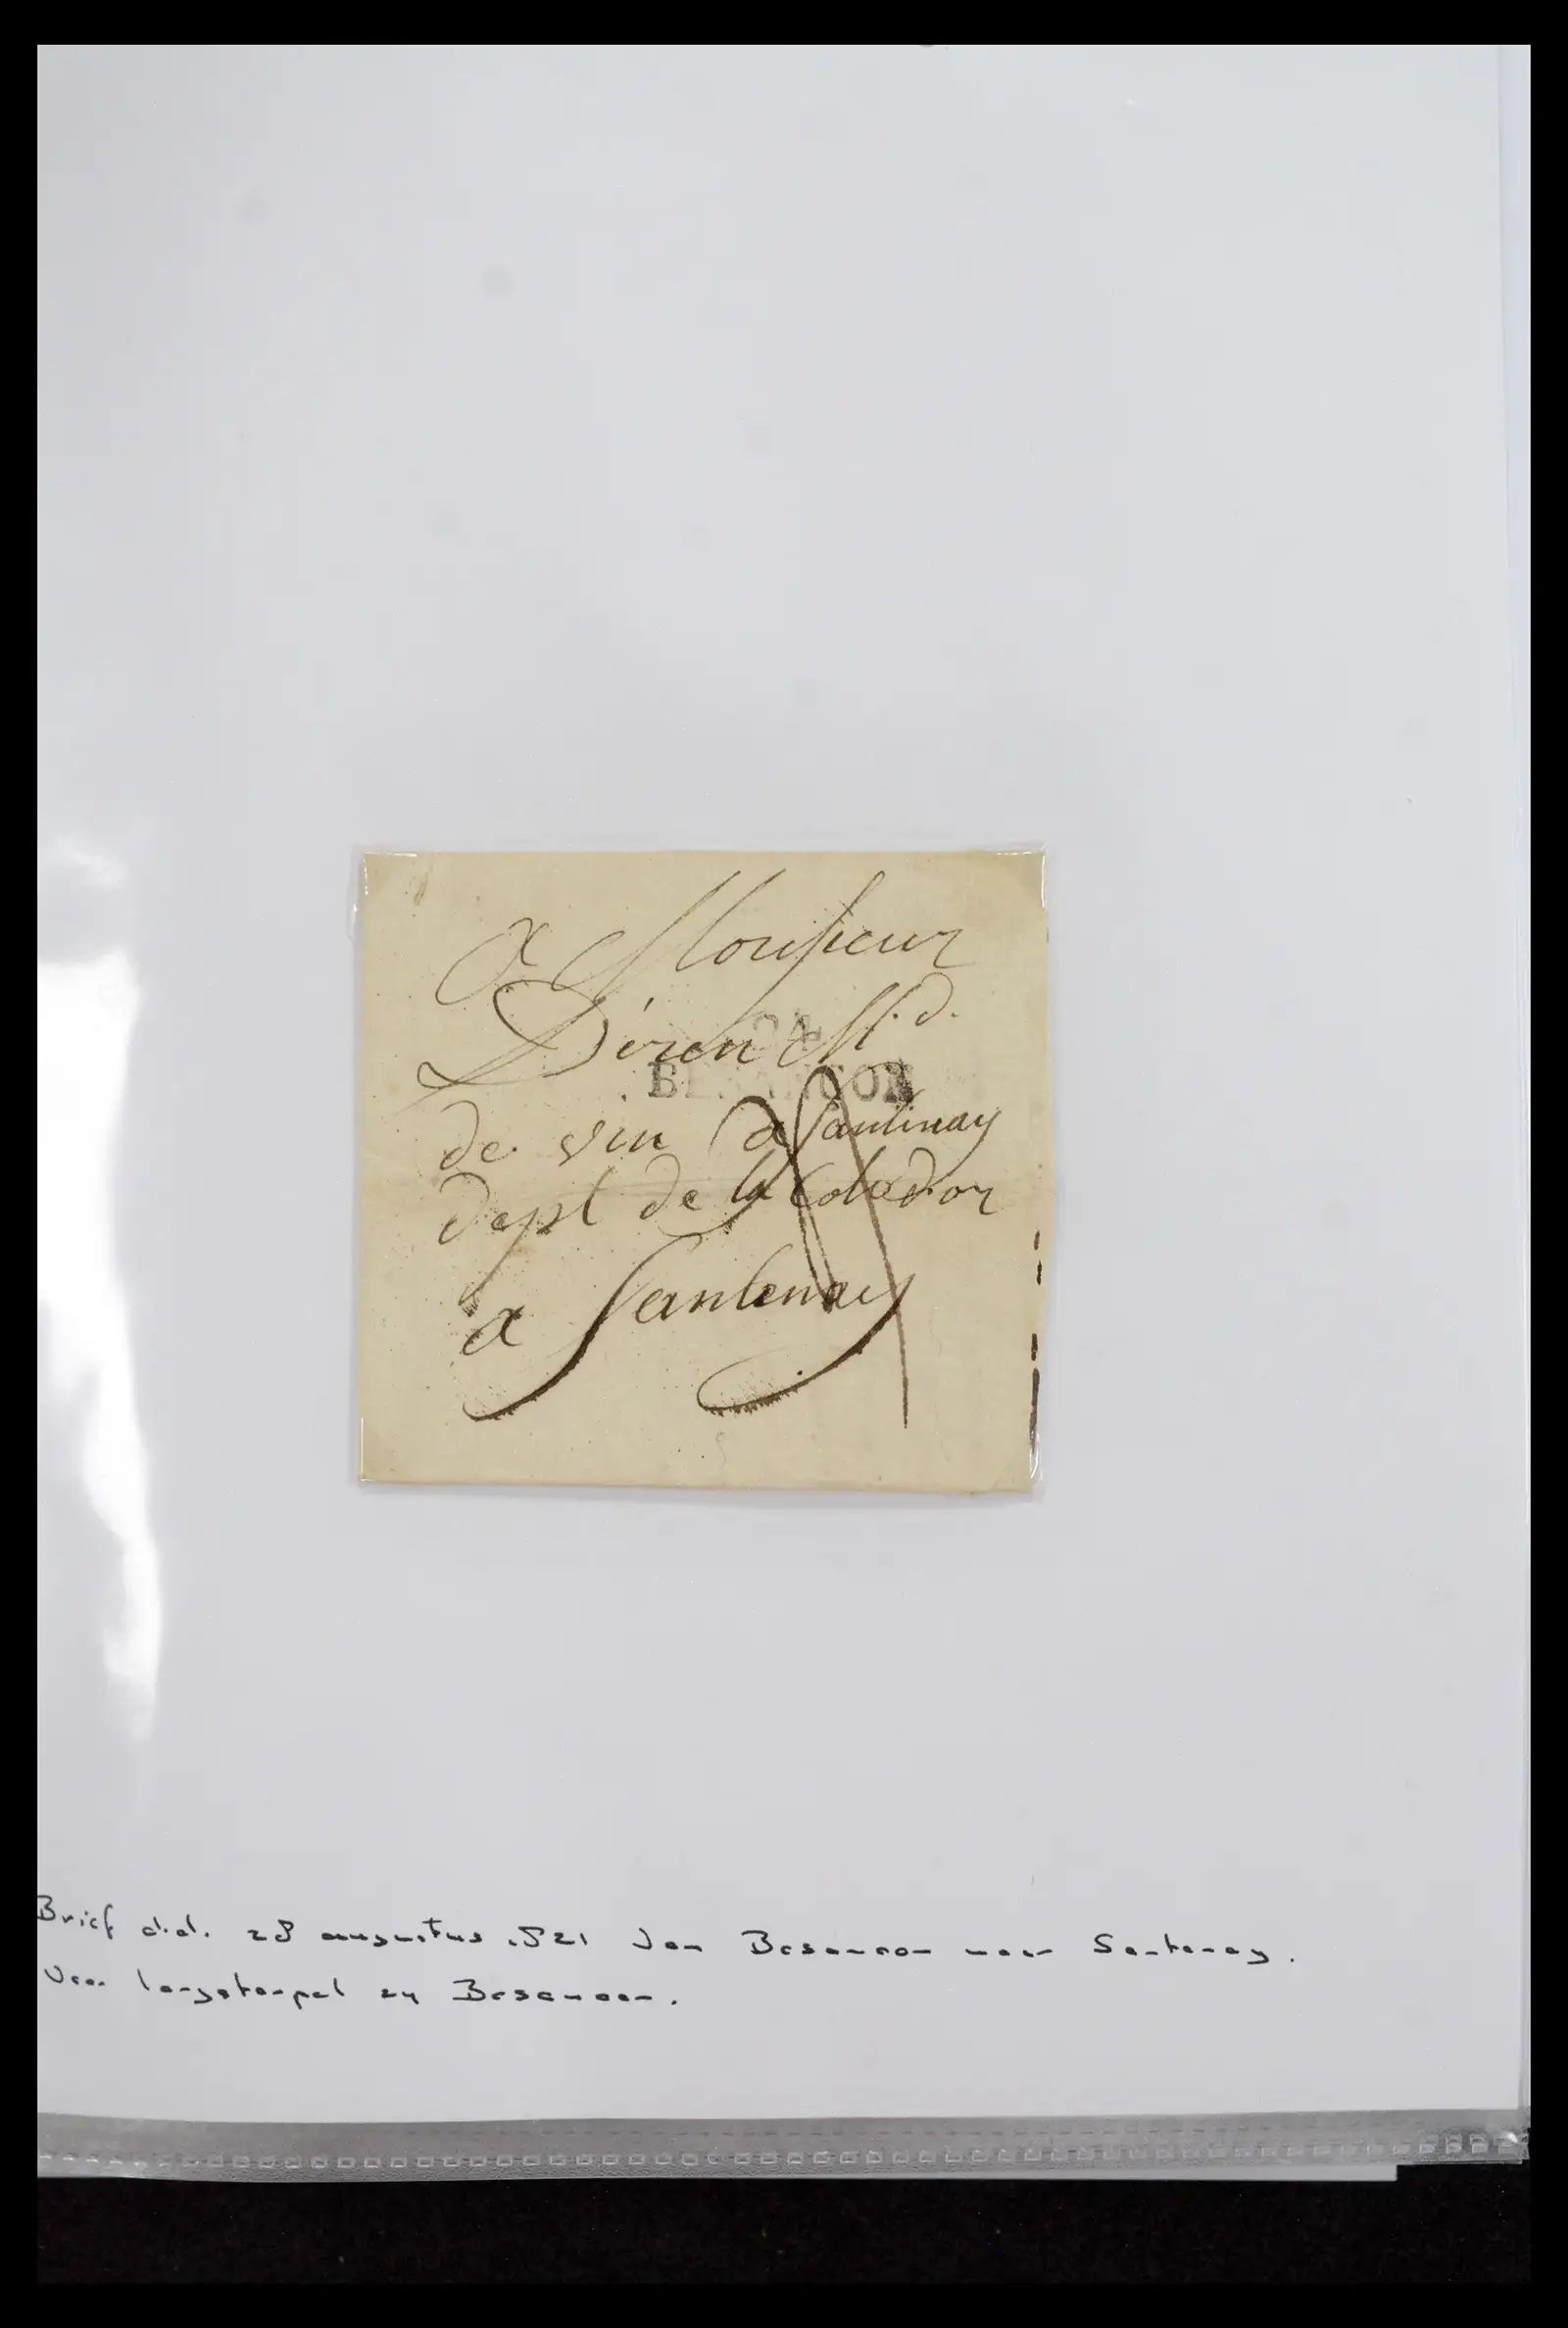 a Monsieur
Déren M.d.
24
BESANCON
de vin a Santenay
dept de la Cotedor
a Santenay
Brief d.d. 28 augustus 1821 van Besancon naar Santenay.
Voor langstempel 24 Besancon.